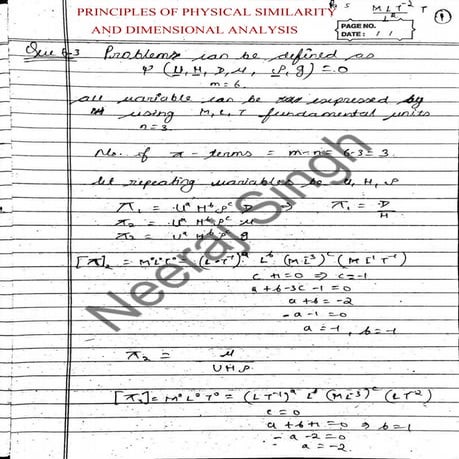 PRINCIPLES OF PHYSICAL SIMILARITY
AND DIMENSIONAL ANALYSIS
MLT⁻²
PAGE NO.
DATE: / /
Problems can be defined as
φ (U, H, D, μ, ρ, g) = 0
m = 6
all variable can be expressed by
using M, L, T fundamental units
n = 3
No. of π - terms = m-n = 6-3 = 3
let repeating variables be U, H, ρ
π₁ = Uᵃ Hᵇ ρᶜ D ⇒ π₁ = D/H
π₂ = Uᵃ Hᵇ ρᶜ μ
π₃ = Uᵃ Hᵇ ρᶜ g
[π]₂ = M⁰L⁰T⁰ = (LT⁻¹)ᵃ Lᵇ (ML⁻³)ᶜ (ML⁻¹T⁻¹)
c+1=0 ⇒ c=-1
a+b-3c-1=0
a+b=-2
-a-1=0
a=-1, b=-1
π₂ = μ/UHρ
[π₃] = M⁰L⁰T⁰ = (LT⁻¹)ᵃ Lᵇ (ML⁻³)ᶜ (LT⁻²)
c=0
a+b+1=0 ⇒ b=1
-a-2=0
a=-2
Neeraj Singh